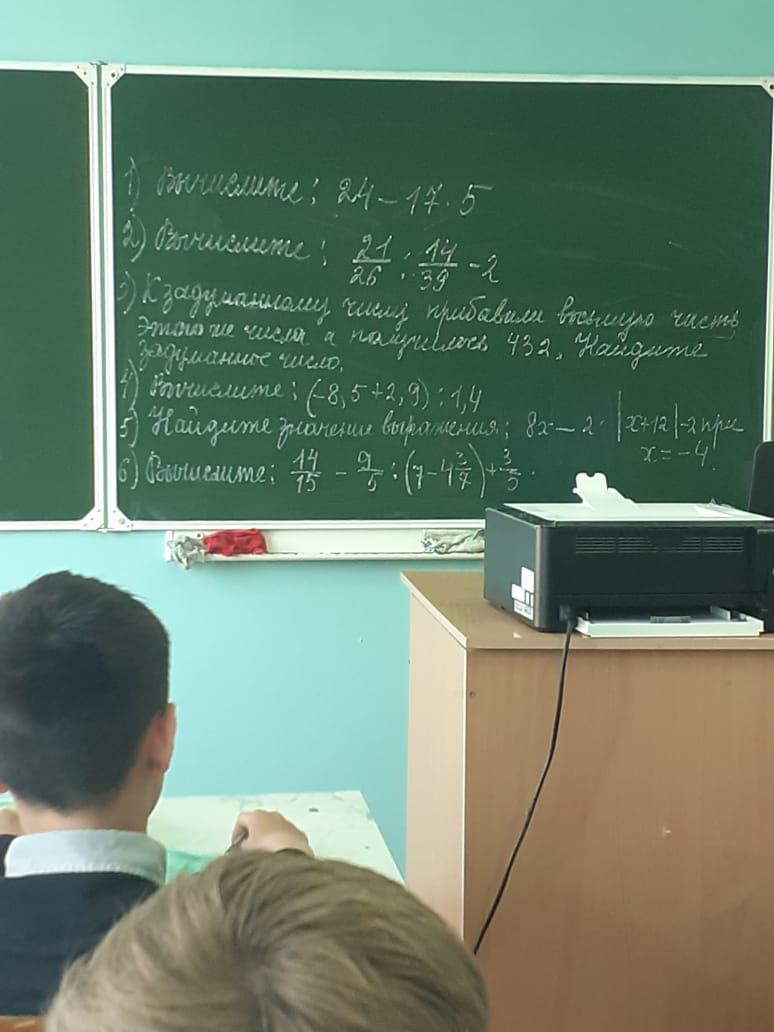 1) Вычислите: 24 - 17 · 5
2) Вычислите: 21/26 : 14/39 - 2
3) К задуманному числу прибавили восьмую часть
этого же числа и получилось 432. Найдите
задуманное число.
4) Вычислите: (-8,5+2,9) : 1,4
5) Найдите значение выражения: 8x - 2 · |x+12| - 2 при
x = -4.
6) Вычислите: 14/15 - 9/5 : (7 - 4 3/7) + 3/5.